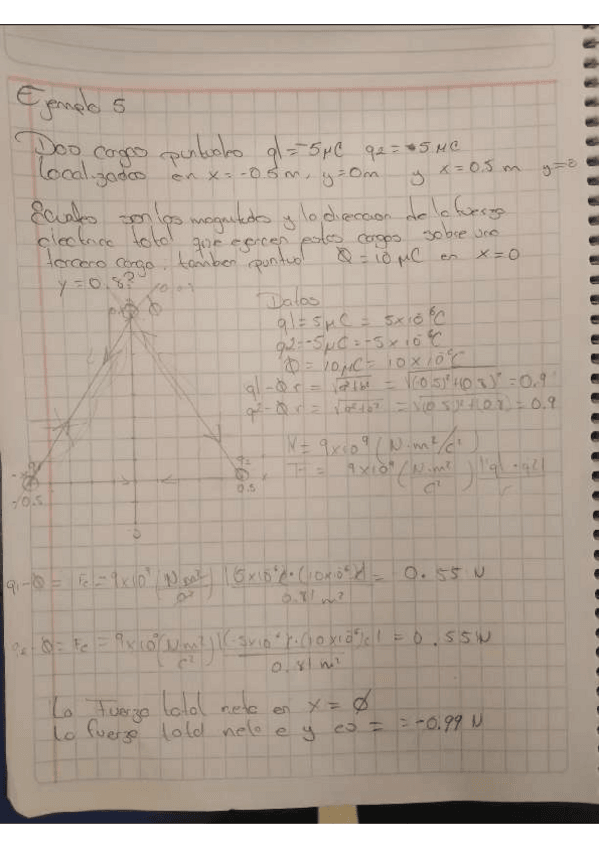 Ejemplo 5
Dos cargas puntuales q1=-5μC q2=-5μC
localizadas en x=-0.5m, y=0m y x=0.5m y=0
¿Cuales son las magnitudes y la direccion de la fuerza
electrica total que ejercen estas cargas sobre una
tercera carga, tambien puntual Q=10μC en x=0
y=0.8?
Datos
q1=5μC = 5x10⁶C
q2=-5μC=-5x10⁶C
Q=10μC=10x10⁶C
q1-Q r = √a²+b² = √(0.5)²+(0.8)² = 0.9
q2-Q r = √a²+b² = √(0.5)²+(0.8) = 0.9
K = 9x10⁹ (N·m²/c²)
F = 9x10⁹ (N·m²/c²) |q1·q2|/r
-0.5
q2
0.5
0
q1-Q = Fc=9x10⁹ (N·m²/c²) |(5x10⁶c)·(10x10⁶c)|/0.81m² = 0.55 N
q2-Q = Fc = 9x10⁹(N·m²/c²) |(-5x10⁶)·(10x10⁶c)|/0.81m² = 0.55N
La fuerza total neta en x = Ø
La fuerza total neta e y es = = -0.99 N